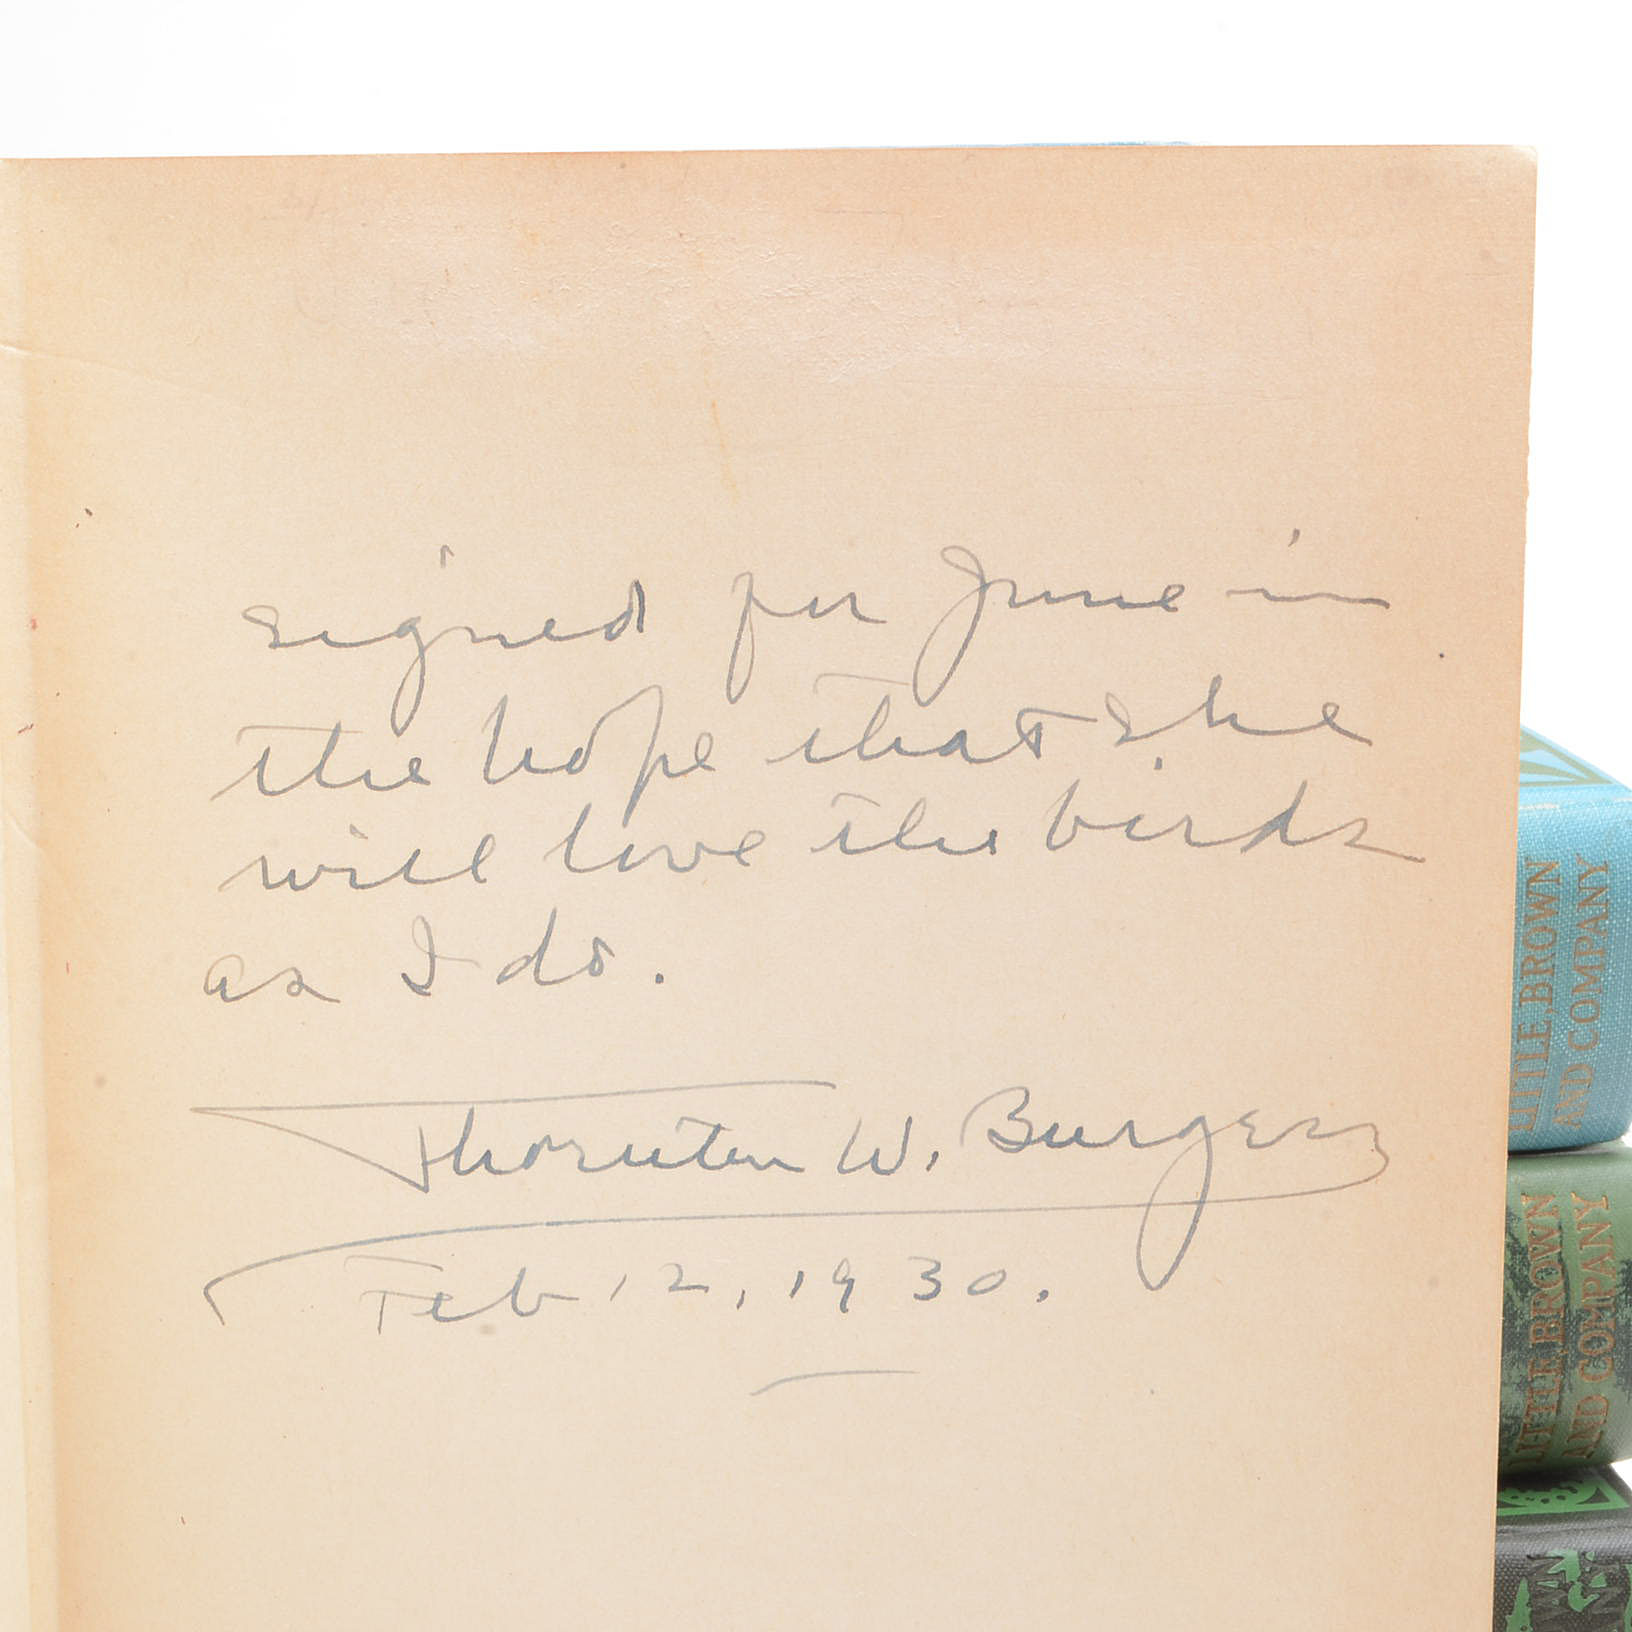 signed for June in
the hope that she
will love the birds
as I do.
Thornton W. Burgess
Feb 12, 1930.
LITTLE, BROWN
AND COMPANY
LITTLE, BROWN
AND COMPANY